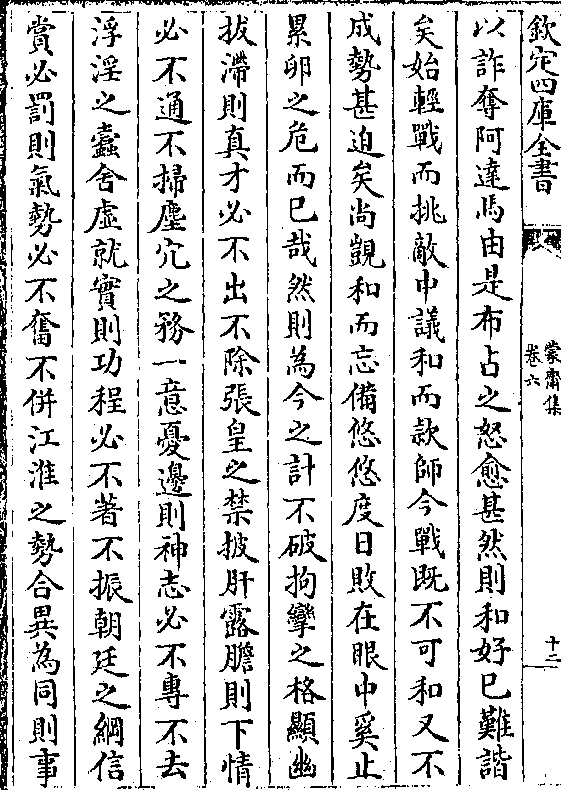 欽定四庫全書
蒙齋集
卷六
十二
以詐奪阿達馬由是布占之怒愈甚然則和好已難諧
矣始輕戰而挑敵中議和而款師今戰既不可和又不
成勢甚迫矣尚覬和而忘備悠悠度日敗在眼中奚止
累卵之危而已哉然則為今之計不破拘攣之格顯幽
拔滯則真才必不出不除張皇之禁披肝露膽則下情
必不通不掃塵宂之務一意憂邊則神志必不專不去
浮淫之蠧舍虚就實則功程必不著不振朝廷之綱信
賞必罰則氣勢必不奮不併江淮之勢合異為同則事